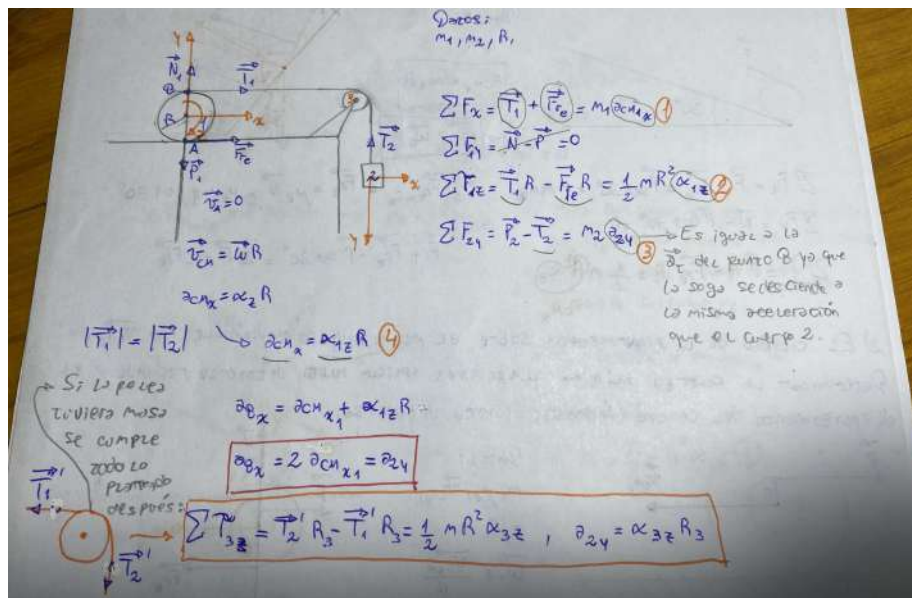 Datos:
m1, m2, R,
y
N⃗1
T⃗1
B
R
x
A
F⃗re
P⃗1
v⃗A=0
3
T⃗2
2
x
y
∑Fx = T⃗1 + F⃗re = m1 acm1x ①
∑F1y = N⃗ - P⃗ = 0
∑τ1z = T⃗1R - F⃗reR = 1/2 mR² α1z ②
∑F2y = P⃗2 - T⃗2 = m2 a2y ③
→ Es igual a la
a⃗τ del punto B ya que
la soga se desciende a
la misma aceleración
que el cuerpo 2.
v⃗cm = ω⃗R
acmx = αzR
|T⃗1| = |T⃗2|
acmx = α1zR ④
Si la polea
tuviera masa
se cumple
todo lo
planteado
después:
aBx = acmx1 + α1zR
aBx = 2 acmx1 = a2y
T⃗1'
T⃗2'
∑τ⃗3z = T⃗2'R3 - T⃗1'R3 = 1/2 mR² α3z , a2y = α3zR3